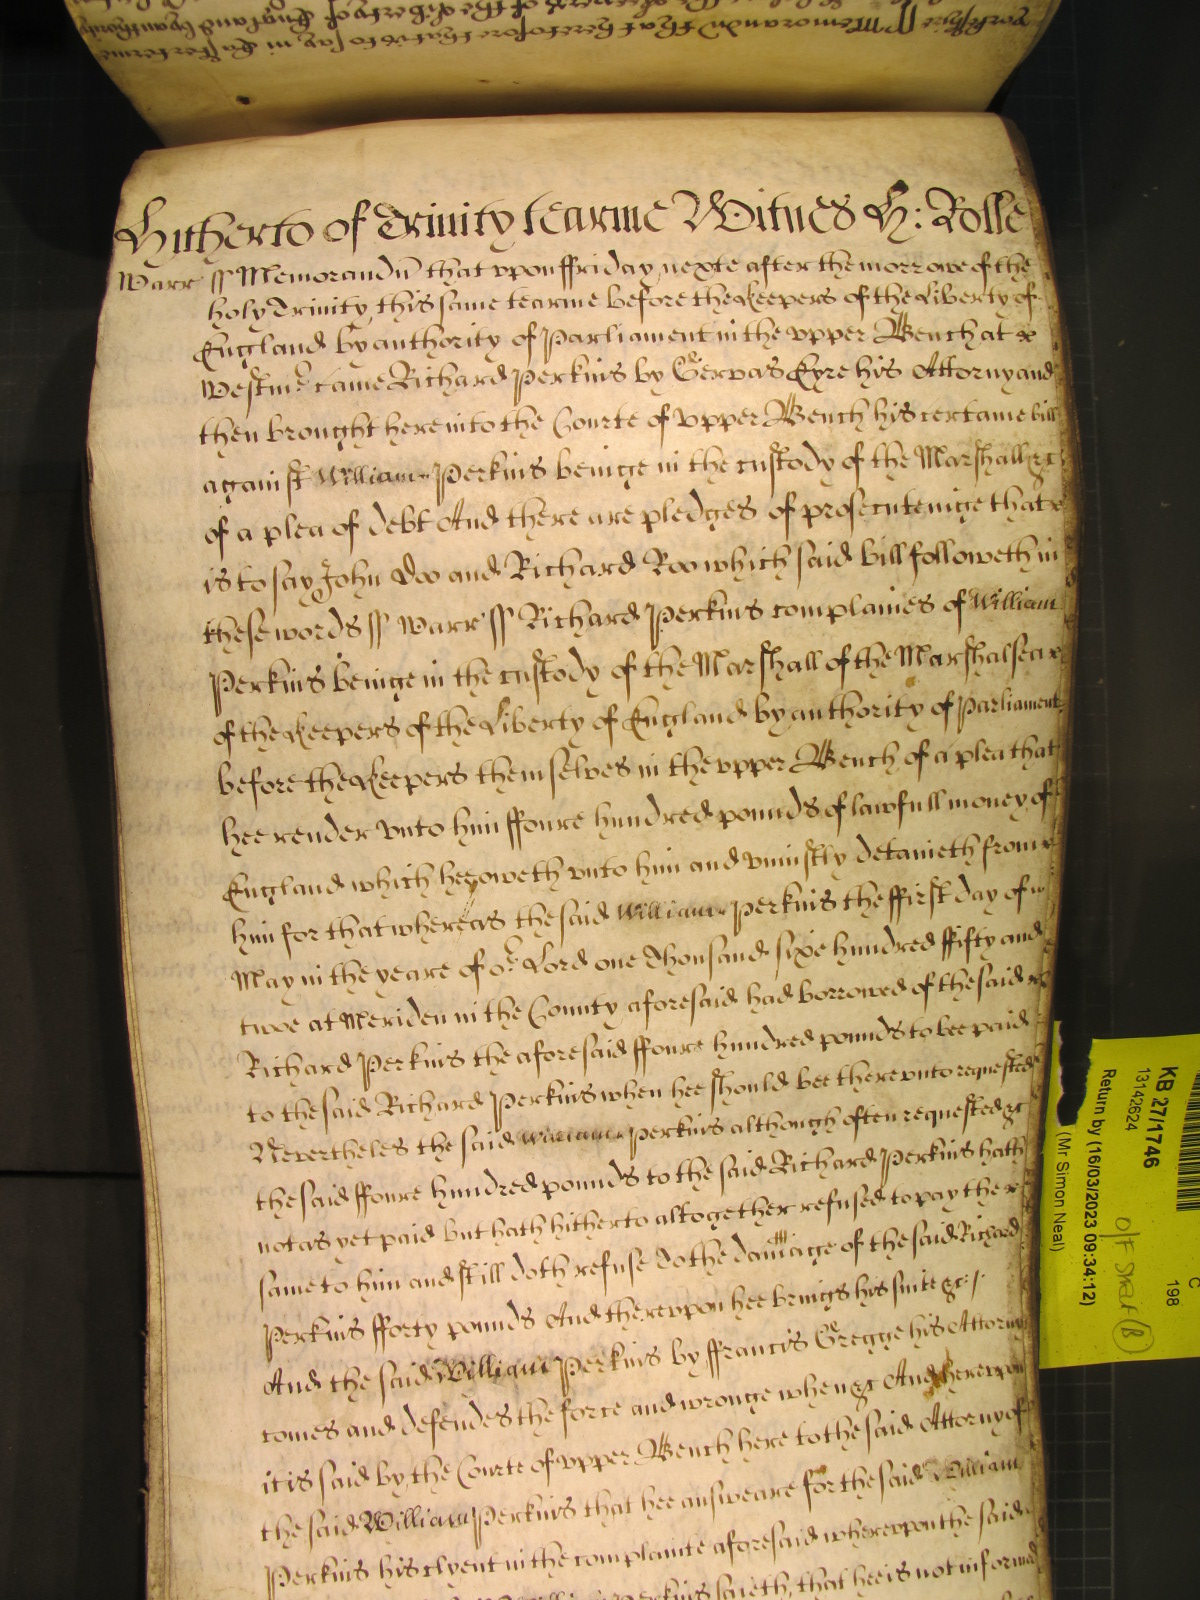 yorkshire ss Memorandu that heretofore that is to say in Easter terme
Hitherto of Trinity tearme Witnes H: Rolle
Warr ss Memorandū that vpon ffriday nexte after the morrowe of the
holy Trinity this same tearme before the Keepers of the Liberty of
England by authority of Parliament in the vpper Bench at
Westmr came Richard Perkins by Gervas Eyre his Attorny and
then brought here into the Courte of vpper Bench his certaine bill
against William Perkins beinge in the custody of the Marshall &c
of a plea of debt And there are pledges of prosecuteinge that
is to say John Doo and Richard Roo which said bill followeth in
these words ss Warr ss Richard Perkins complaines of William
Perkins beinge in the custody of the Marshall of the Marshalsea
of the Keepers of the Liberty of England by authority of Parliament
before the Keepers themselves in the vpper Bench of a plea that
hee render vnto him ffoure hundred pounds of lawfull money of
England which he oweth vnto him and vniustly detaineth from
him for that whereas the said William Perkins the ffirst day of
May in the yeare of or Lord one Thousand sixe hundred ffifty and
twoe at Meriden in the County aforesaid had borrowed of the said
Richard Perkins the aforesaid ffoure hundred pounds to bee paid
to the said Richard Perkins when hee should bee therevnto requested
Nevertheles the said William Perkins although often requested &c
the said ffoure hundred pounds to the said Richard Perkins hath
not as yet paid but hath hitherto altogether refused to pay the
same to him and still doth refuse To the damage of the said Richard
Perkins fforty pounds And therevpon hee brings his suite &c
And the said William Perkins by ffrancis Gregge his Attorny
comes and defendes the force and wronge when &c And herevpon
it is said by the Courte of vpper Bench here to the said Attorny of
the said William Perkins that hee answeare for the said William
Perkins his clyent in the complainte aforesaid wherevpon the said
Perkins saieth that hee is not informed
KB 27/1746
13142624
Return by (16/03/2023 09:34:12)
(Mr Simon Neal)
C
198